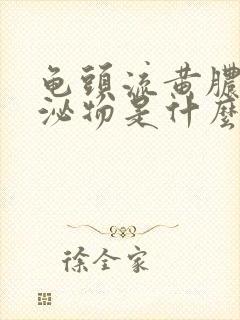 龟頭流黄膿
泌物是什麼
徐全家